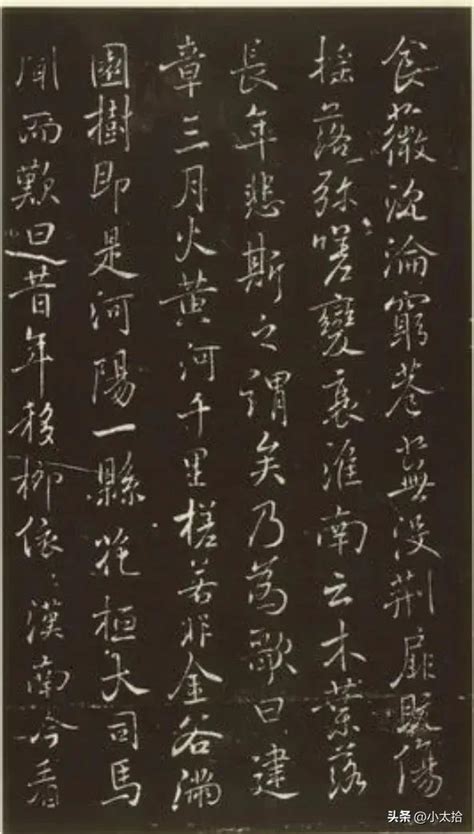 食薇沈淪窮巷蕪没荆扉既傷
搖落弥嗟變衰淮南云木葉落
長年悲斯之謂矣乃為歌曰建
章三月火黃河千里槎若非金谷滿
園樹即是河陽一縣花桓大司馬
聞而歎曰昔年移柳依〻漢南今看
头条 @小太拾